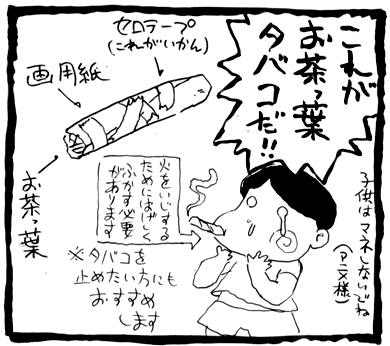 これが
お茶っ葉
タバコだ!!
セロテープ
(これがいかん)
画用紙
お茶っ葉
火をいこしする
ためにはげしく
ふかす必要
があります
子供はマネしないでね
※タバコを
止めたい方にも
おすすめ
します